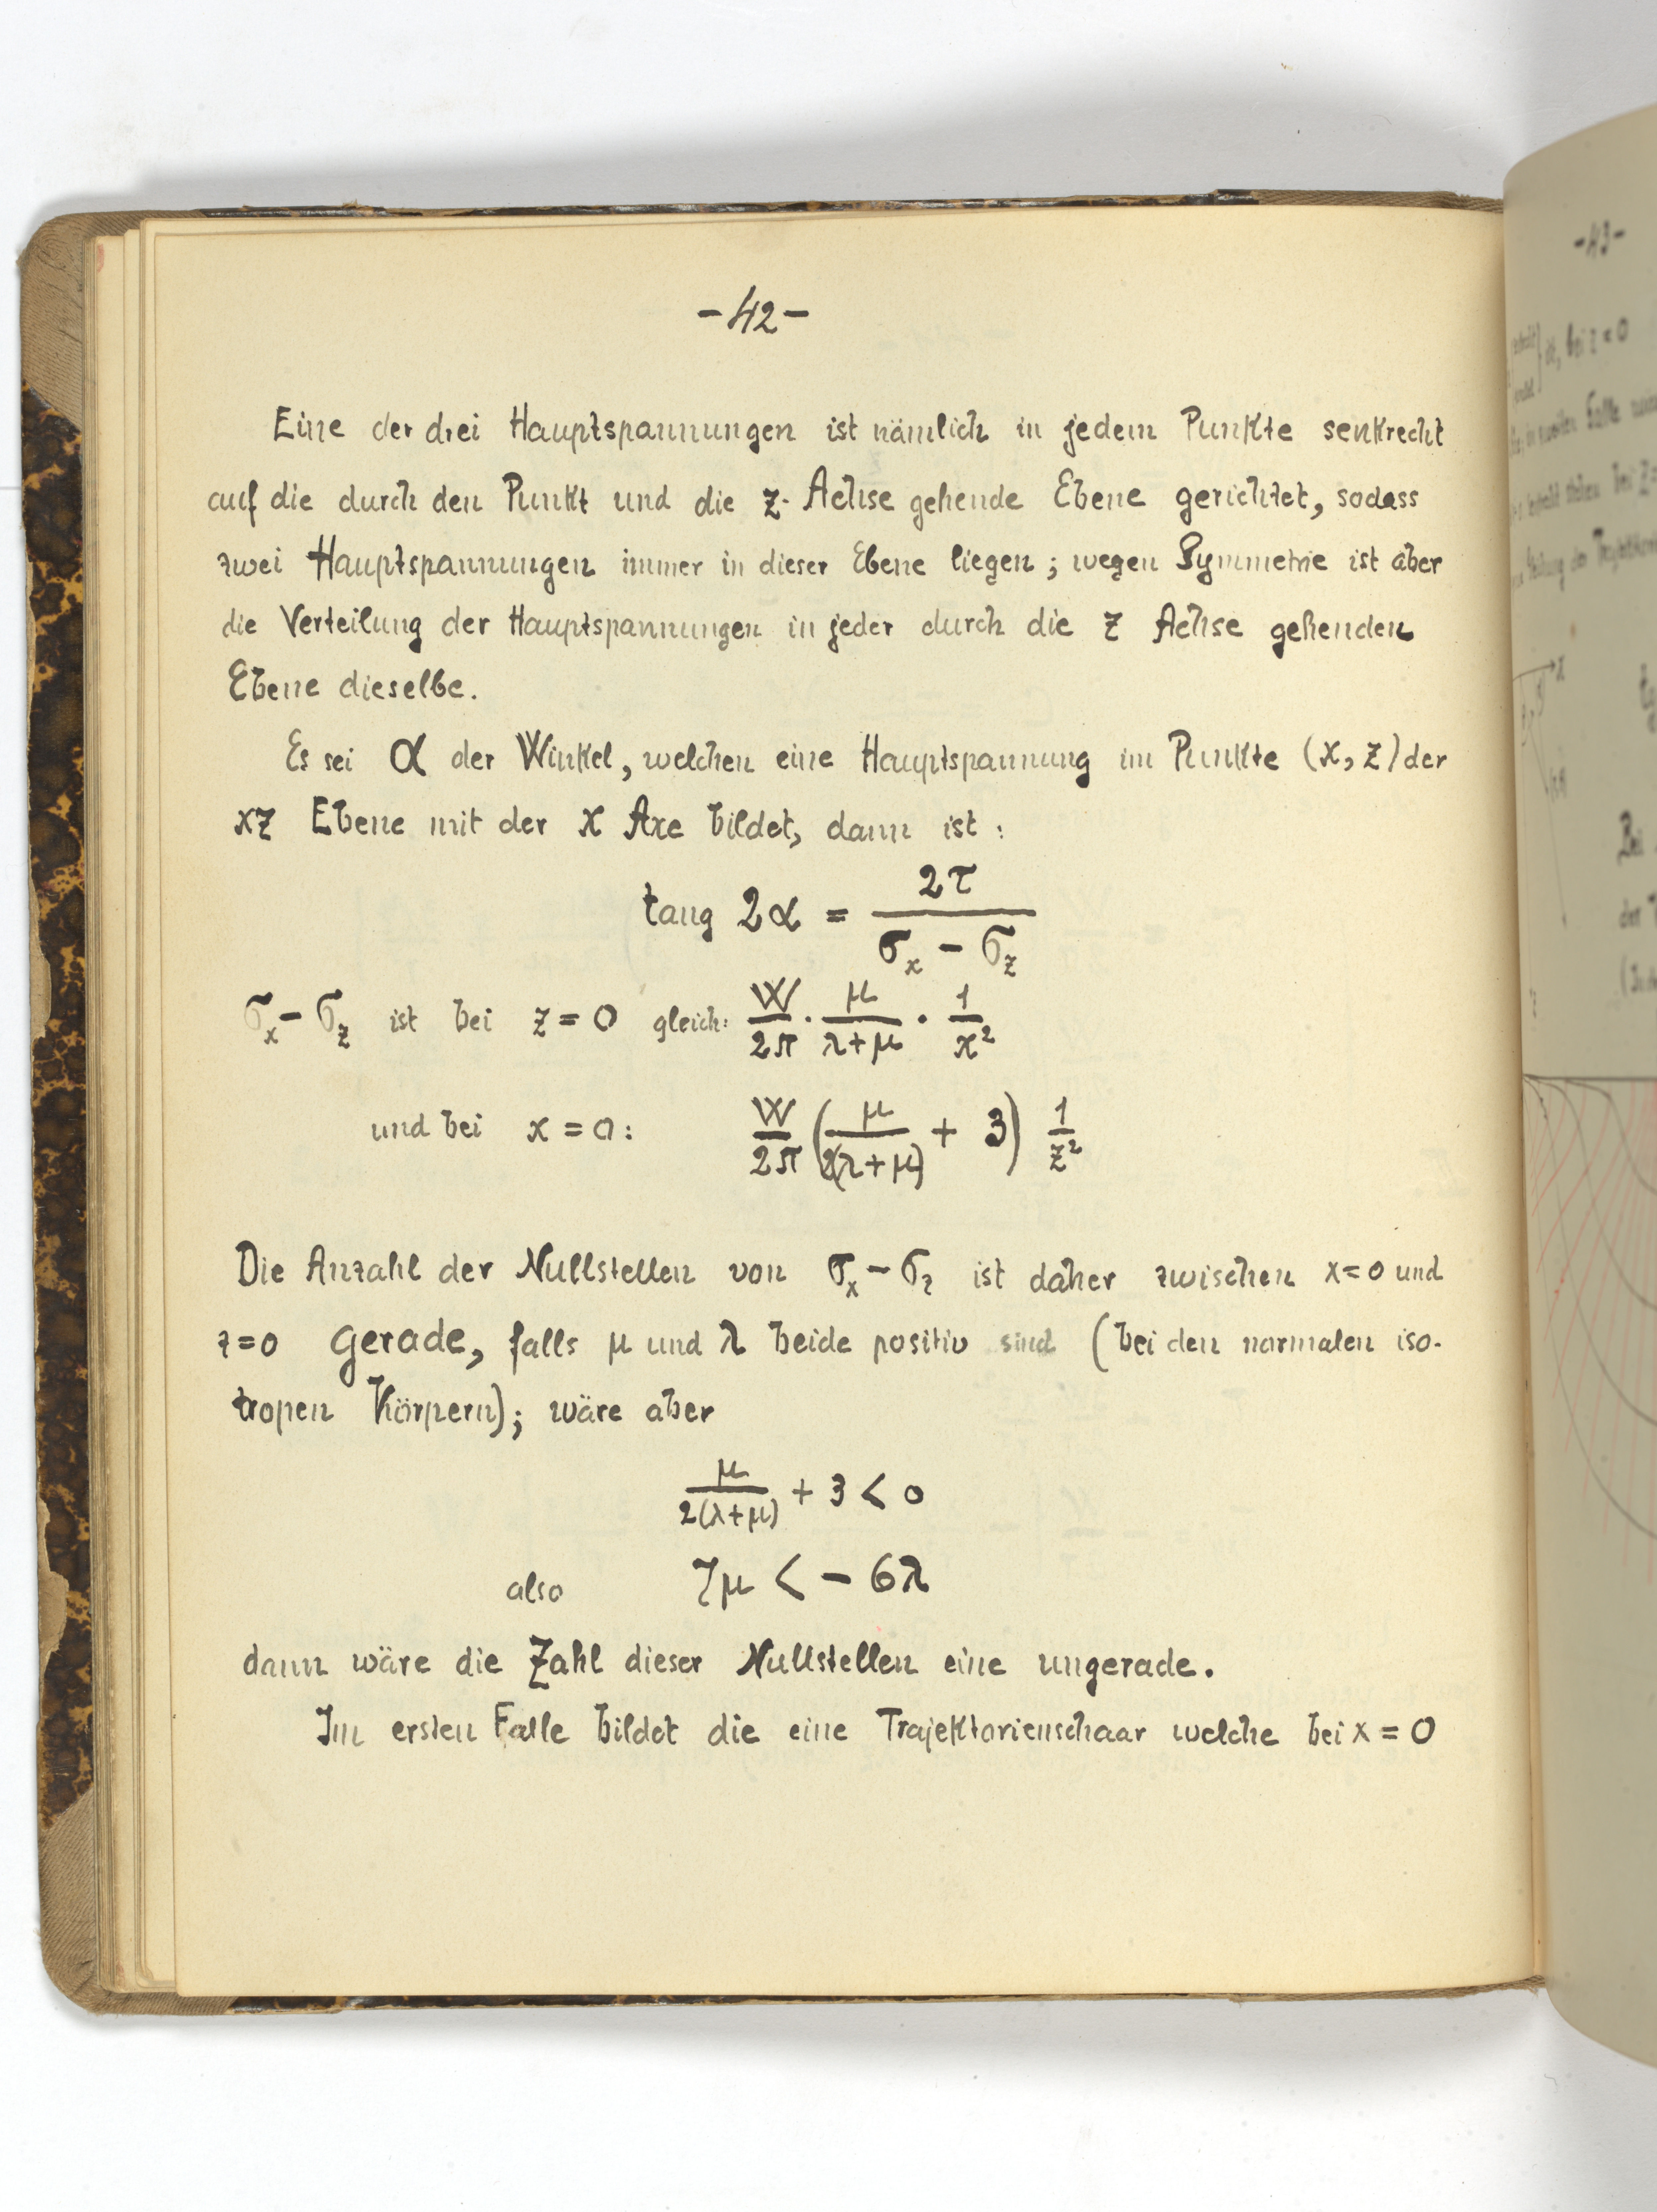 -42-
Eine der drei Hauptspannungen ist nämlich in jedem Punkte senkrecht
auf die durch den Punkt und die z-Achse gehende Ebene gerichtet, sodass
zwei Hauptspannungen immer in dieser Ebene liegen; wegen Symmetrie ist aber
die Verteilung der Hauptspannungen in jeder durch die z Achse gehenden
Ebene dieselbe.
Es sei α der Winkel, welchen eine Hauptspannung im Punkte (x, z) der
xz Ebene mit der x Axe bildet, dann ist:
tang 2α = 2τ / (σx − σz)
σx − σz ist bei z = 0 gleich: W/2π · μ/(λ+μ) · 1/x²
und bei x = 0: W/2π (μ/2(λ+μ) + 3) 1/z²
Die Anzahl der Nullstellen von σx − σz ist daher zwischen x=0 und
z=0 gerade, falls μ und λ beide positiv sind (bei den normalen iso-
tropen Körpern); wäre aber
μ/2(λ+μ) + 3 < 0
also 7μ < − 6λ
dann wäre die Zahl dieser Nullstellen eine ungerade.
Im ersten Falle bildet die eine Trajektorienschaar welche bei x = 0
-43-
ist, bei z = 0